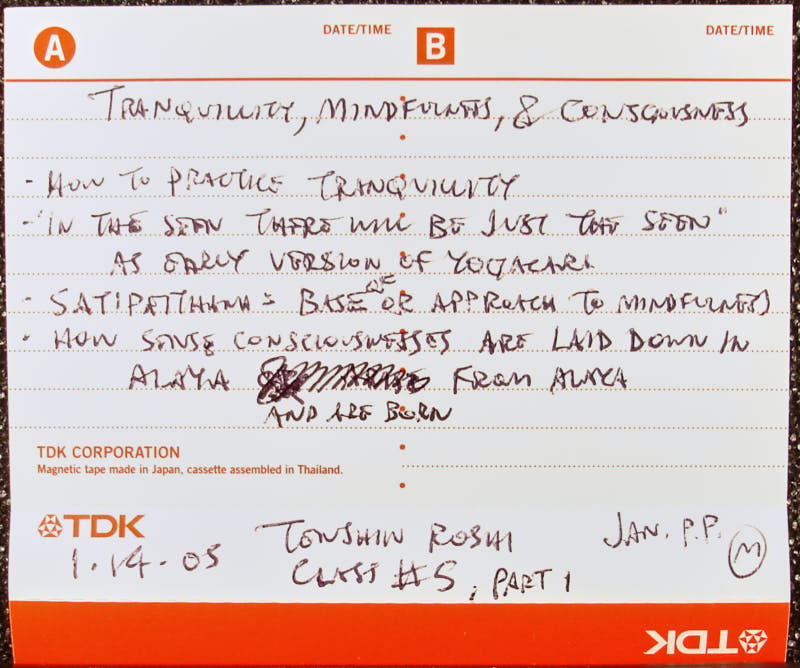 A DATE/TIME B DATE/TIME
TRANQUILLITY, MINDFULNESS, & CONSCIOUSNESS
- HOW TO PRACTICE TRANQUILLITY
- "IN THE SEEN THERE WILL BE JUST THE SEEN"
AS EARLY VERSION OF YOGACARA
- SATIPATTHANA = BASE OF OR APPROACH TO MINDFULNESS
- HOW SENSE CONSCIOUSNESSES ARE LAID DOWN IN
ALAYA FROM ALAYA
AND ARE BORN
TDK CORPORATION
Magnetic tape made in Japan, cassette assembled in Thailand.
TDK
1.14.05 TENSHIN ROSHI JAN. P.P. M
CLASS #5, PART 1
TDK